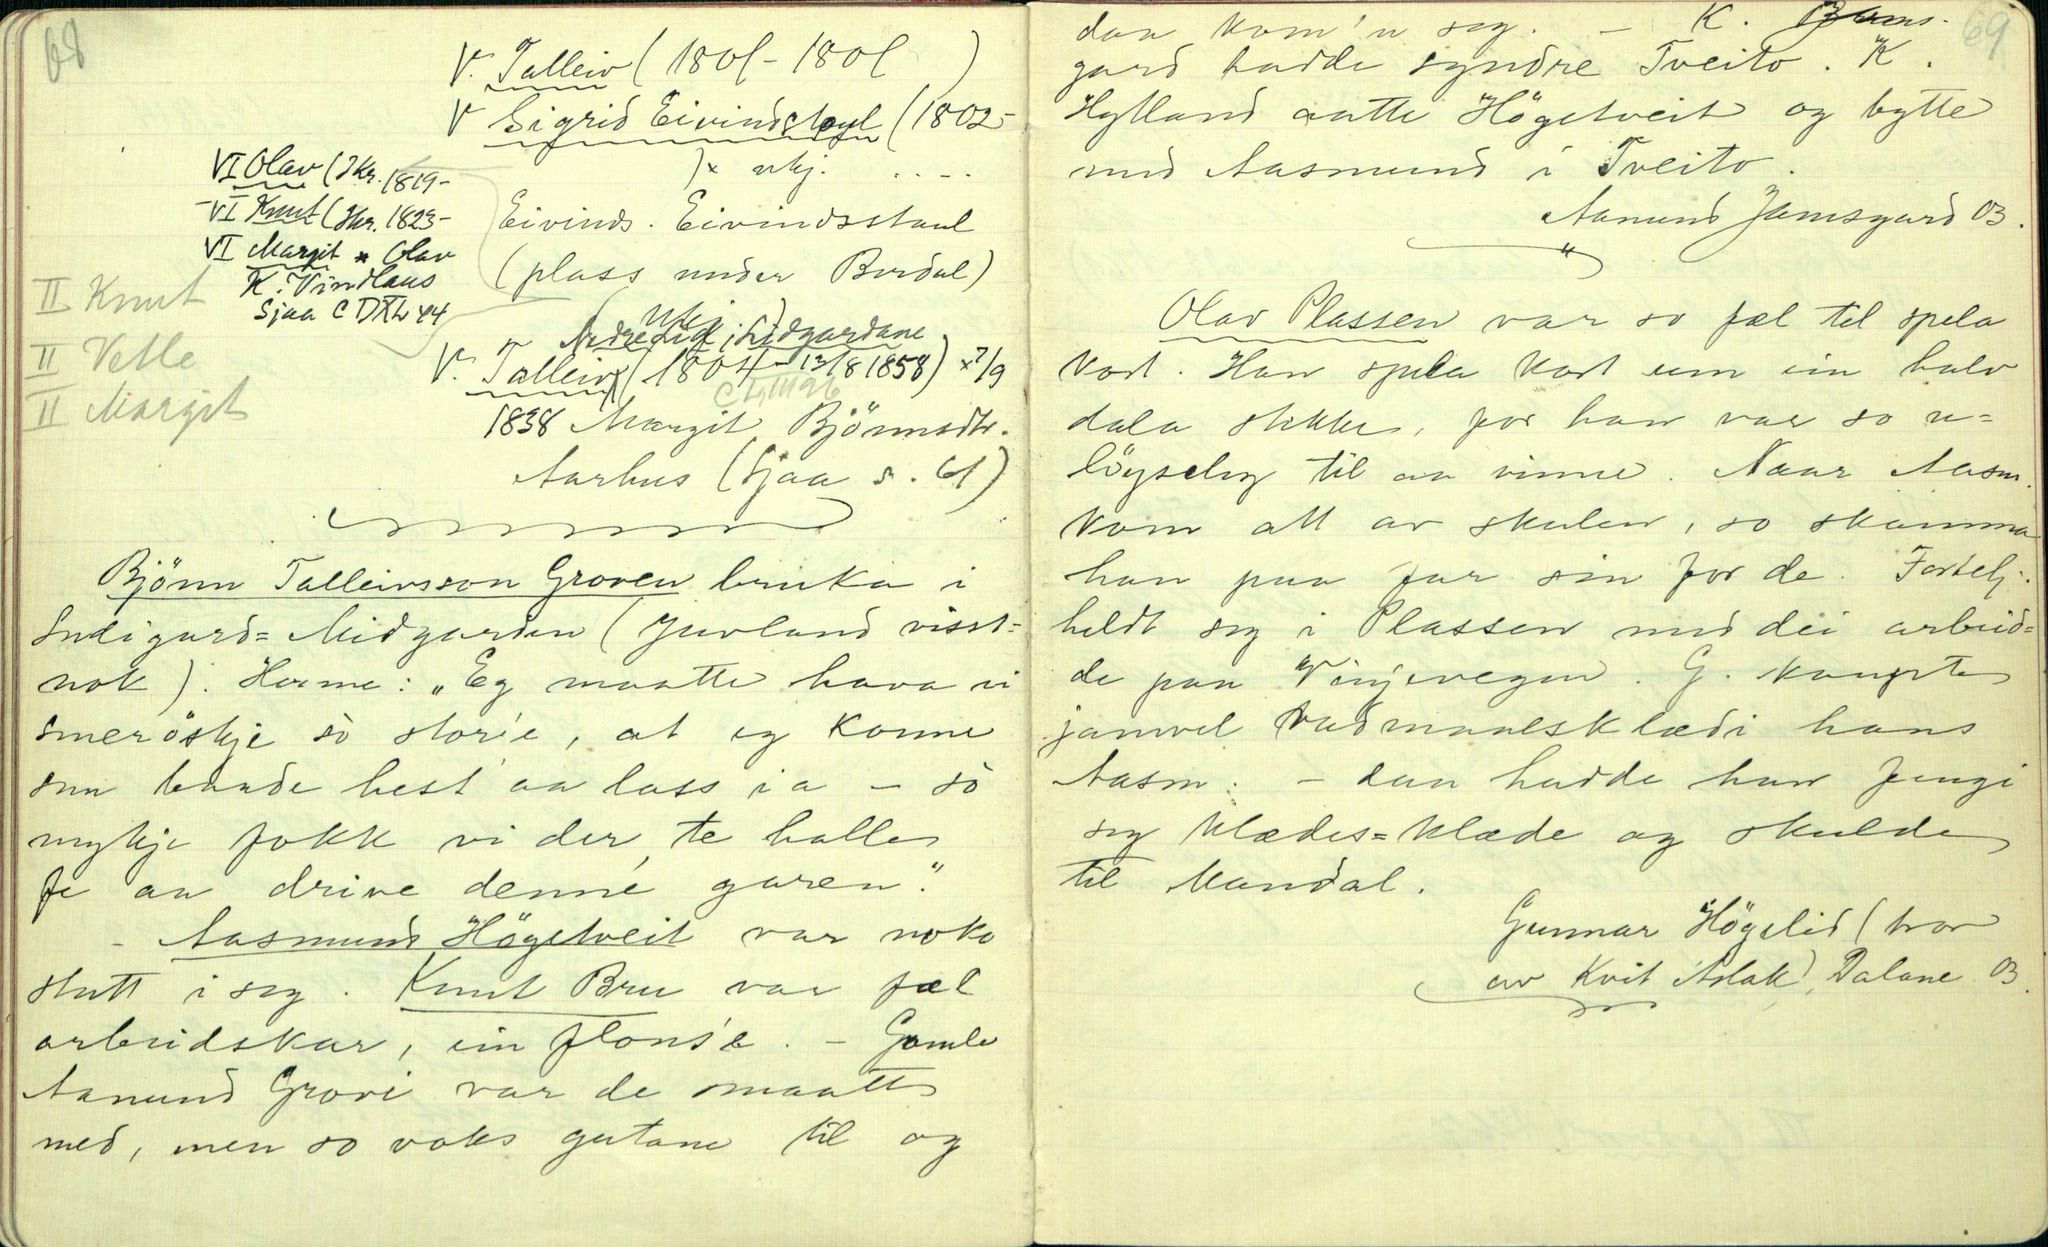 68
V. Talleiv (1801 - 1801 )
V Sigrid Eivindstaul (1802-
)x ukj. ....
Eivinds. Eivindsstaul
(plass under Bordal)
VI Olav (Skr. 1819-
VI Knut (Skr. 1823-
VI Margit x Olav
K. Vindlaus
Sjaa C DXL 44
II Knut
II Vetle
II Margit
Nedre Lid i Lidgardane
V. Talleiv (1804 - 13/8 1858) x 7/9
1838 Margit Björnsdtr.
Aarhus (Sjaa s. 61)
Björn Talleivsson Groven bruka i
Sudigard= Midgarden (Juvland visst=
nok). Herme: „Eg maatte hava ei
smerøskje sò stor'e, at eg konne
snu baade hest aa lass i a - sò
mykje fokk vi der te halles
fe aa drive denne garen."
- Aasmund Högetveit var noko
stutt i seg. Knut Bru var fæl
arbeidskar, ein flons'e. - Gamle
Aanund Grovi var de maatte
med, men so voks gutane til og
69
daa kom'n seg. - K. Jams-
gard hadde syndre Tveito. K.
Hylland aatte Högetveit og bytte
med Aasmund i Tveito.
Aanund Jamsgard 03.
Olav Plassen var so fæl til spela
kort. Han spela kort um ein halv
dala stikke, for han var so u=
löyseleg til aa vinne. Naar Aasm.
kom att av skulen, so skamma
han paa far sin for de. Fortelj.
heldt seg i Plassen med dei arbeid=
de paa Vinjevegen. G. kaupte
jamvel vadmaalsklædi hans
Aasm. - daa hadde han fengi
seg klædes=klæde og skulde
til Mandal.
Gunnar Högelid (bror
av Kvit Aslak) Dalane 03.